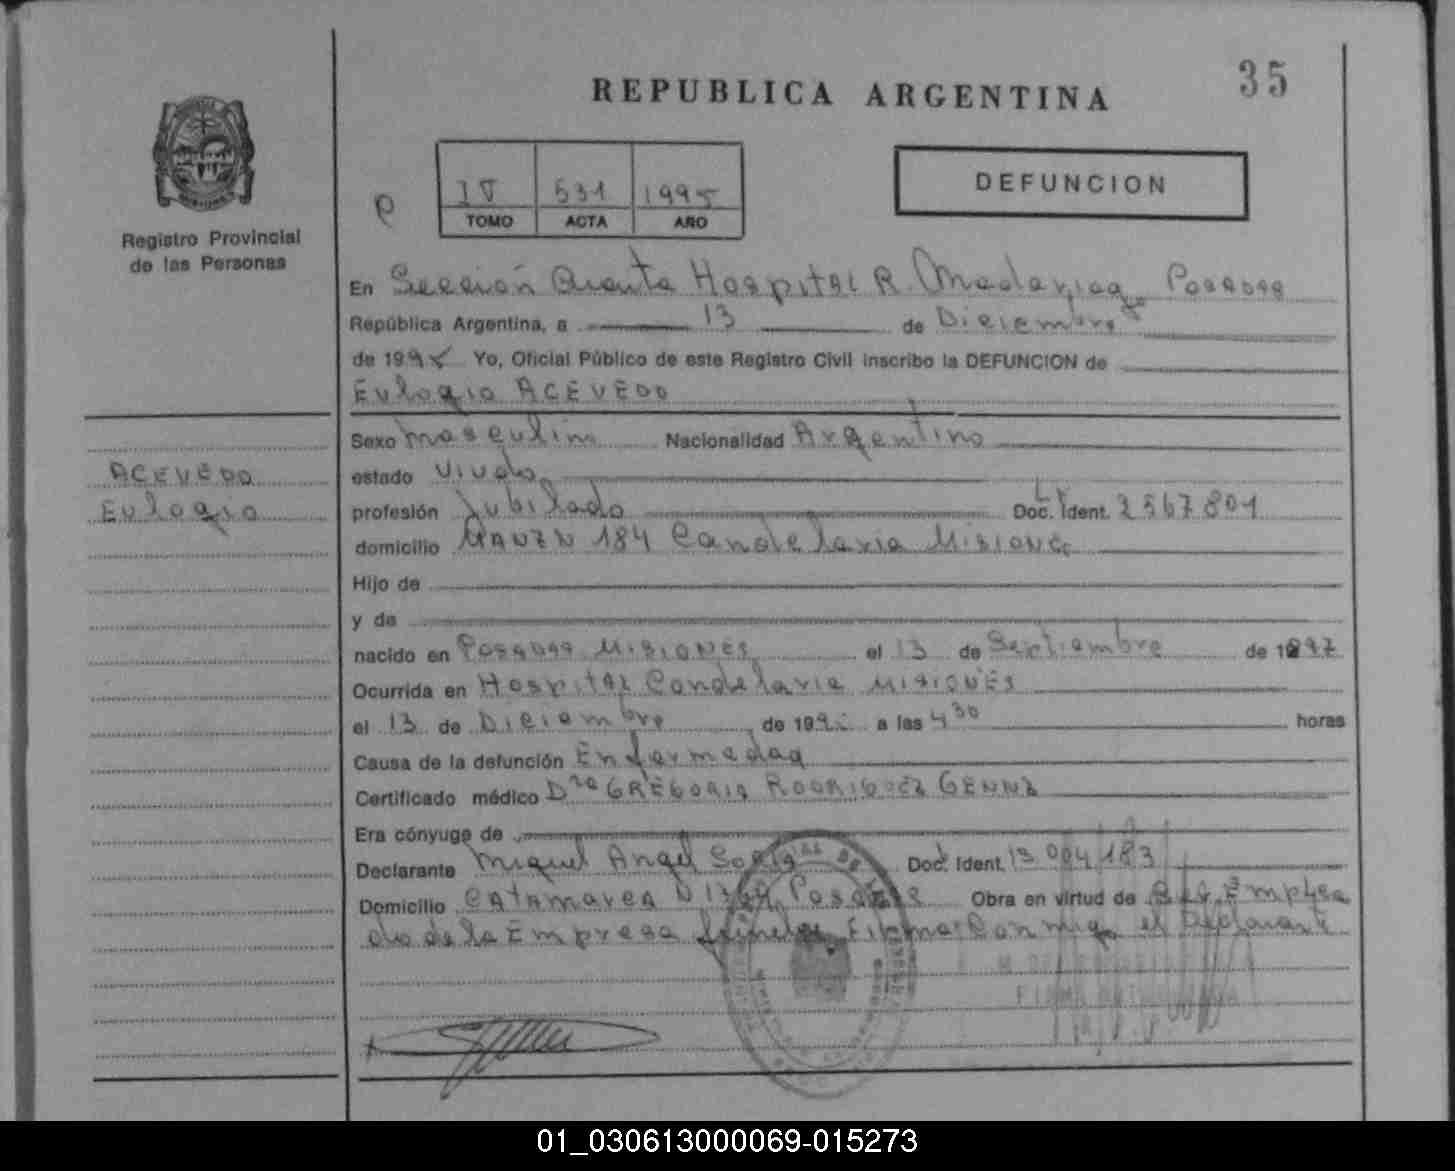 35
REPUBLICA ARGENTINA
DEFUNCION
IV 531 1995
TOMO ACTA AÑO
Registro Provincial
de las Personas
En Sección Quinta Hospital R. Madariaga Posadas
República Argentina, a 13 de Diciembre
de 1995 Yo, Oficial Público de este Registro Civil inscribo la DEFUNCION de
Eulogio ACEVEDO
ACEVEDO
Eulogio
Sexo masculino Nacionalidad Argentino
estado viudo
profesión Jubilado Doc. Ident. 2567801
domicilio MANZN 184 Candelaria Misiones
Hijo de
y de
nacido en Posadas Misiones el 13 de Septiembre de 1
Ocurrida en Hospital Candelaria Misiones
el 13 de Diciembre de 199 a las 4 30 horas
Causa de la defunción Enfermedad
Certificado médico Dra GREGORIA RODRIGUEZ
Era cónyuge de
Declarante Miguel Angel Soria Doc. Ident. 13.004.183
Domicilio CATAMARCA N Posadas Obra en virtud de Ser Emplea
do de la Empresa Firma Conmigo el Declarante
01_030613000069-015273